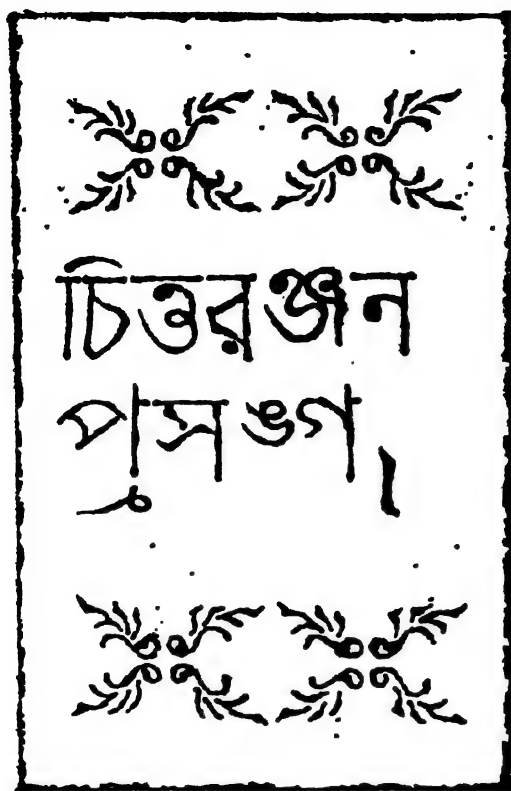 চিত্তরঞ্জন
প্রসঙ্গ।